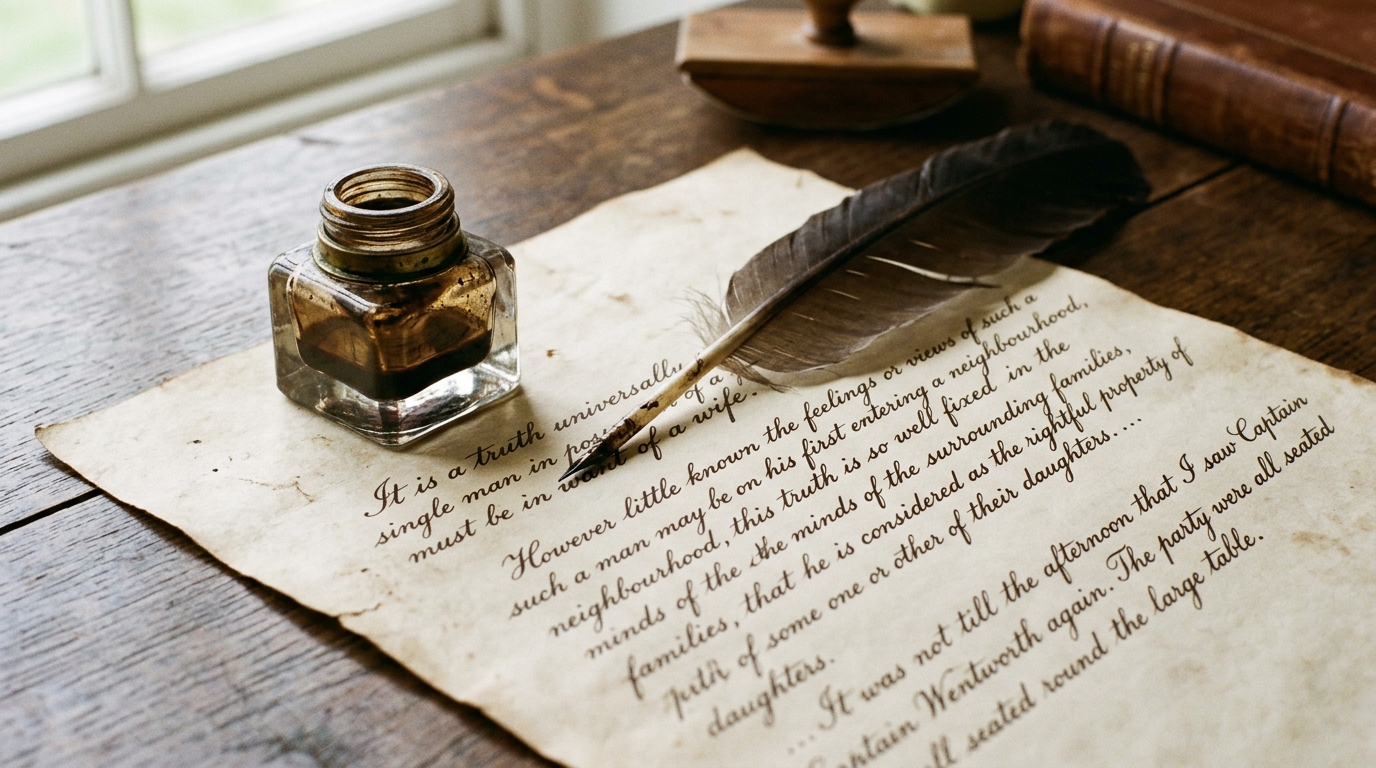 It is a truth universally
single man in of a
must be in want of a wife.
However little known the feelings or views of such a
such a man may be on his first entering a neighbourhood,
neighbourhood, this truth is so well fixed in the
minds of the the minds of the surrounding families,
families, that he is considered as the rightful property of
of some one or other of their daughters....
daughters.
... It was not till the afternoon that I saw Captain
Captain Wentworth again. The party were all seated
seated round the large table.